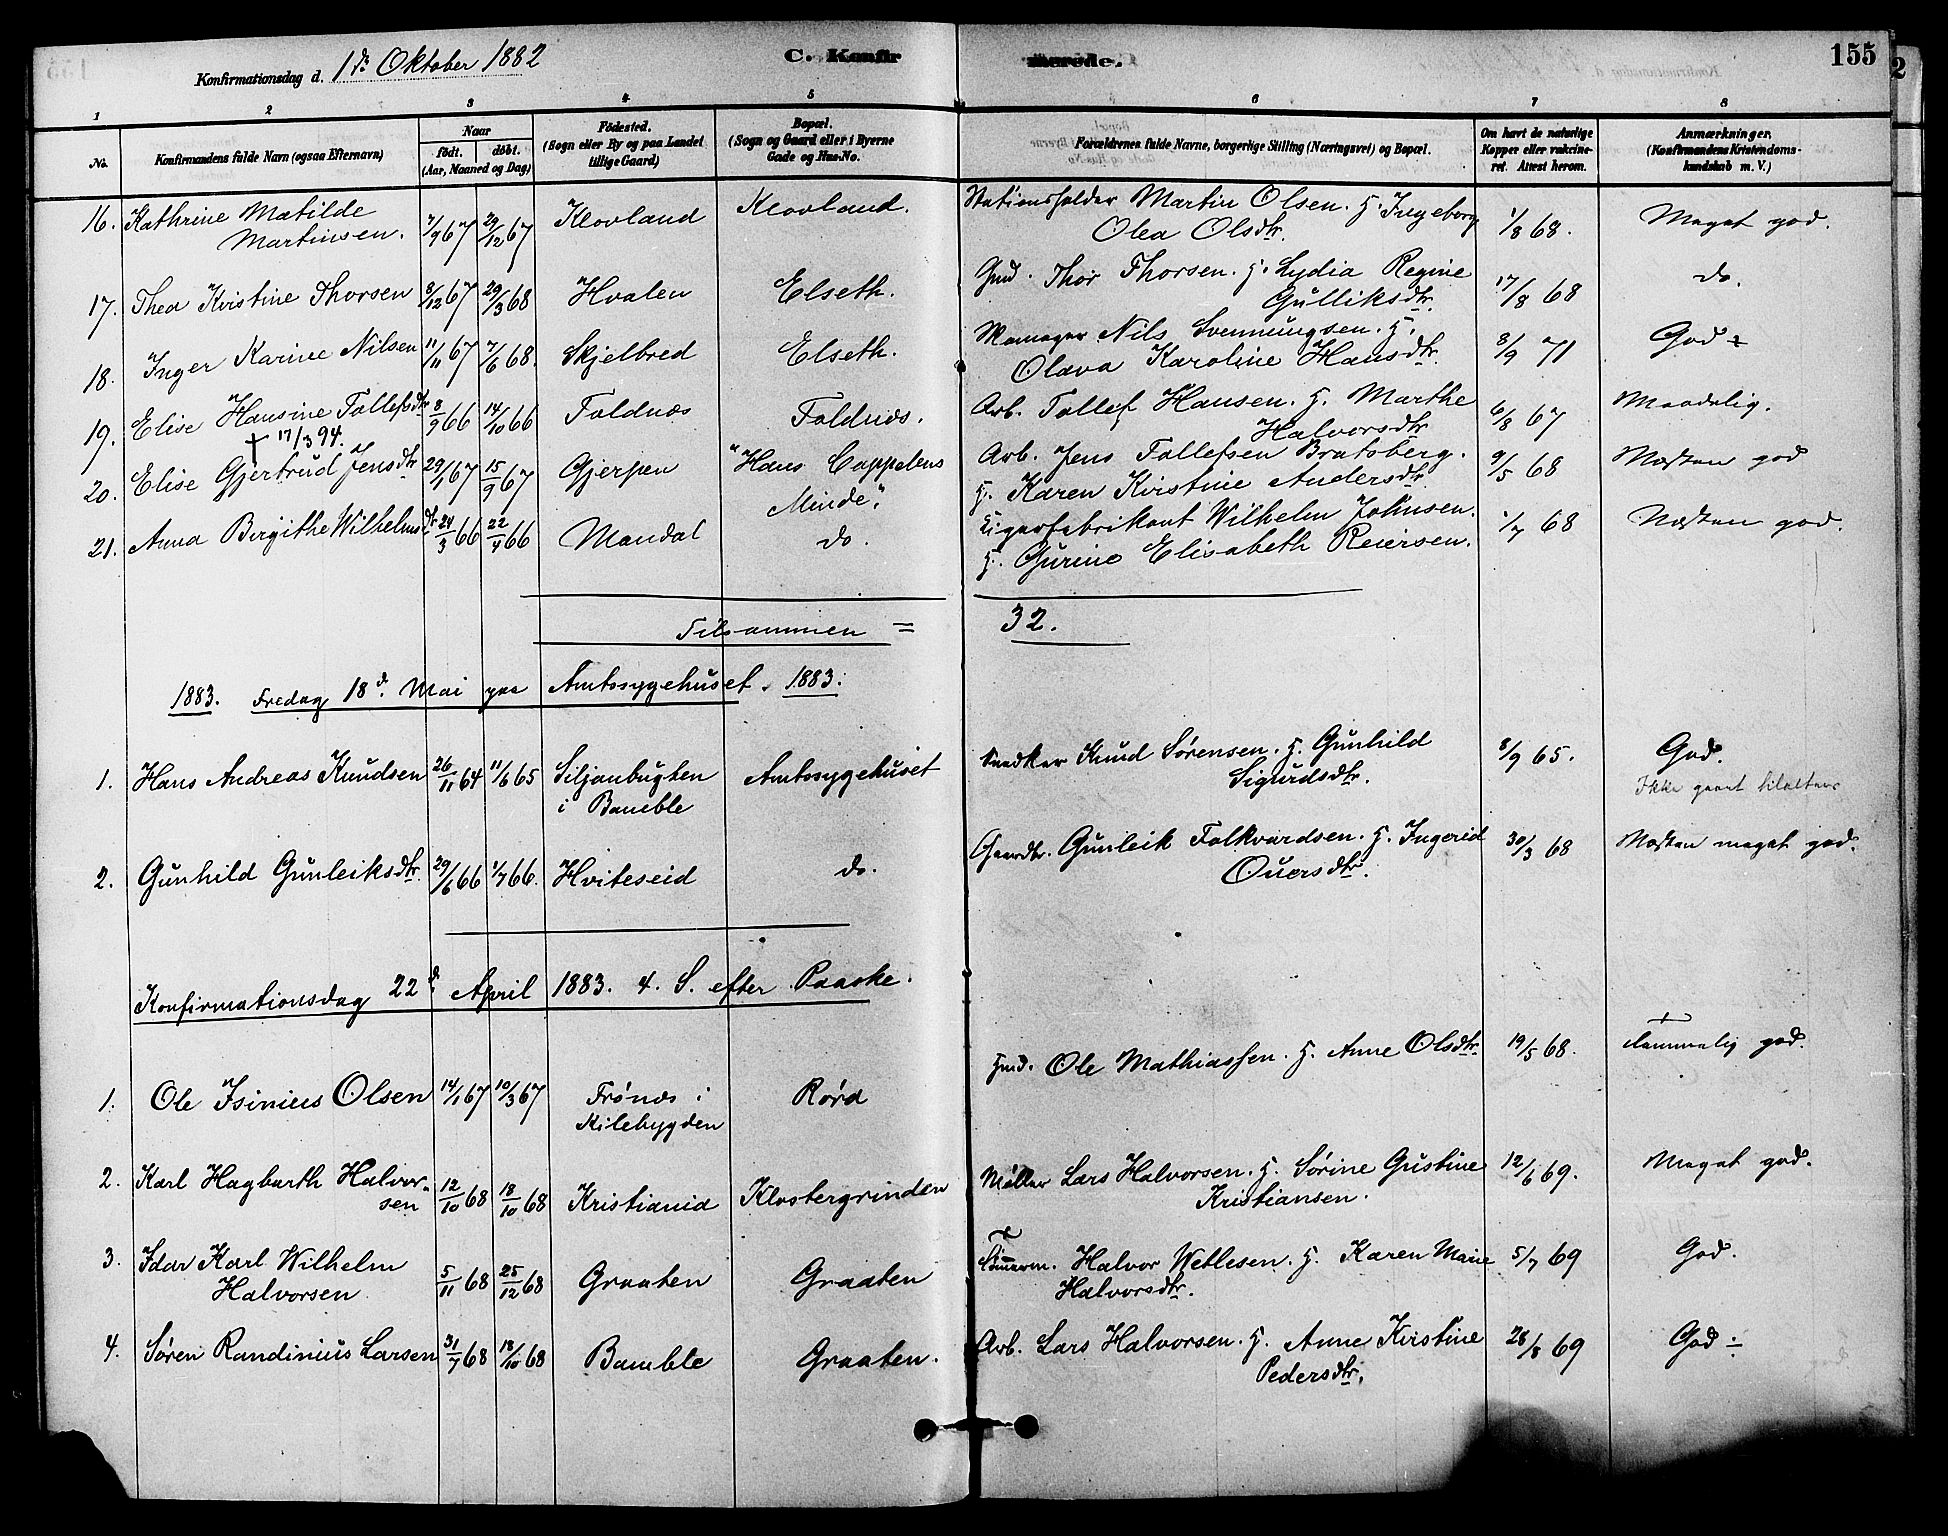 Konfirmationsdag d. 1ste Oktober 1882
C. Konfirmerede.
155
1 2 3 4 5 6 7 8
No.
Konfirmandens fulde Navn (ogsaa Efternavn)
Naar
født. døbt.
(Aar, Maaned og Dag)
Fødested.
(Sogn eller By og paa Landet
tillige Gaard)
Bopæl.
(Sogn og Gaard eller i Byerne
Gade og Hus-No.
Forældrenes fulde Navne, borgerlige Stilling (Næringsvei) og Bopæl.
Om havt de naturlige
Kopper eller vakcine-
ret. Attest herom.
Anmærkninger.
(Konfirmandens Kristendoms-
kundskab m. V.)
16. Kathrine Matilde Martinsen. 7/9 67 29/12 67 Klovland Klovland. Stationsholder Martin Olsen. H. Ingeborg Olea Olsdtr. 1/8 68. Meget god.
17. Thea Kristine Thorsen 8/12 67 29/3 68 Hvalen Elseth. Gmd. Thor Thorsen. H. Lydia Regine Gulliksdtr. 17/8 68 do.
18. Inger Karine Nilsen 11/11 67 7/6 68. Skjelbred Elseth. Nils Svennungsen. H. Olava Karoline Hansdtr. 8/9 71 God
19. Elise Hansine Tollefsdtr 8/9 66 14/10 66 Foldnæs Foldnæs. Arb. Tollef Hansen. H. Marthe Halvorsdtr 6/8 67 Maadelig.
† 17/3 94.
20. Elise Gjertrud Jensdtr 29/1 67 15/9 67 Gjerpen "Hans Cappelens Minde." Arb. Jens Tollefsen Bratsberg. H. Karen Kristine Andersdtr 9/5 68 Næsten god
21. Anna Birgithe Wilhelmsdtr 24/3 66 22/4 66 Mandal do. Cigarfabrikant Wilhelm Johnsen. H. Gurine Elisabeth Reiersen. 1/7 68 Næsten god.
Tilsammen = 32.
1883. Fredag 18d. Mai paa Amtssygehuset. 1883.
1. Hans Andreas Knudsen 26/11 64 11/6 65 Siljanbugten i Bamble Amtssygehuset Snedker Knud Sørensen. H. Gunhild Sigurdsdtr. 8/9 65. God.
Ikke gaaet tilalters
2. Gunhild Gunleiksdtr. 29/6 66 1/7 66. Hviteseid do. Gaardbr. Gunleik Folkvardsen. H. Ingerid Ouersdtr. 30/3 68 Næsten meget god.
Konfirmationsdag 22d. April 1883. 4. S. efter Paaske.
1. Ole Isinius Olsen 14/1 67 10/3 67 Frönæs i Kilebygden Rörd Hmd. Ole Mathiassen. H. Anne Olsdtr. 19/5 68. Temmelig god.
2. Karl Hagbarth Halvorsen 12/10 68 18/10 68 Kristiania Klostergrinden Møller Lars Halvorsen. H. Sørine Gustine Kristiansen. 12/6 69. Meget god.
3. Idar Karl Wilhelm Halvorsen 5/11 68 25/12 68 Graaten Graaten Tömmerm. Halvor Wetlesen. H. Karen Marie Halvorsdtr. 5/7 69 God.
4. Søren Randinius Larsen 31/7 68 18/10 68 Bamble Graaten. Arb. Lars Halvorsen. H. Anne Kristine Pedersdtr. 28/8 69 God ÷